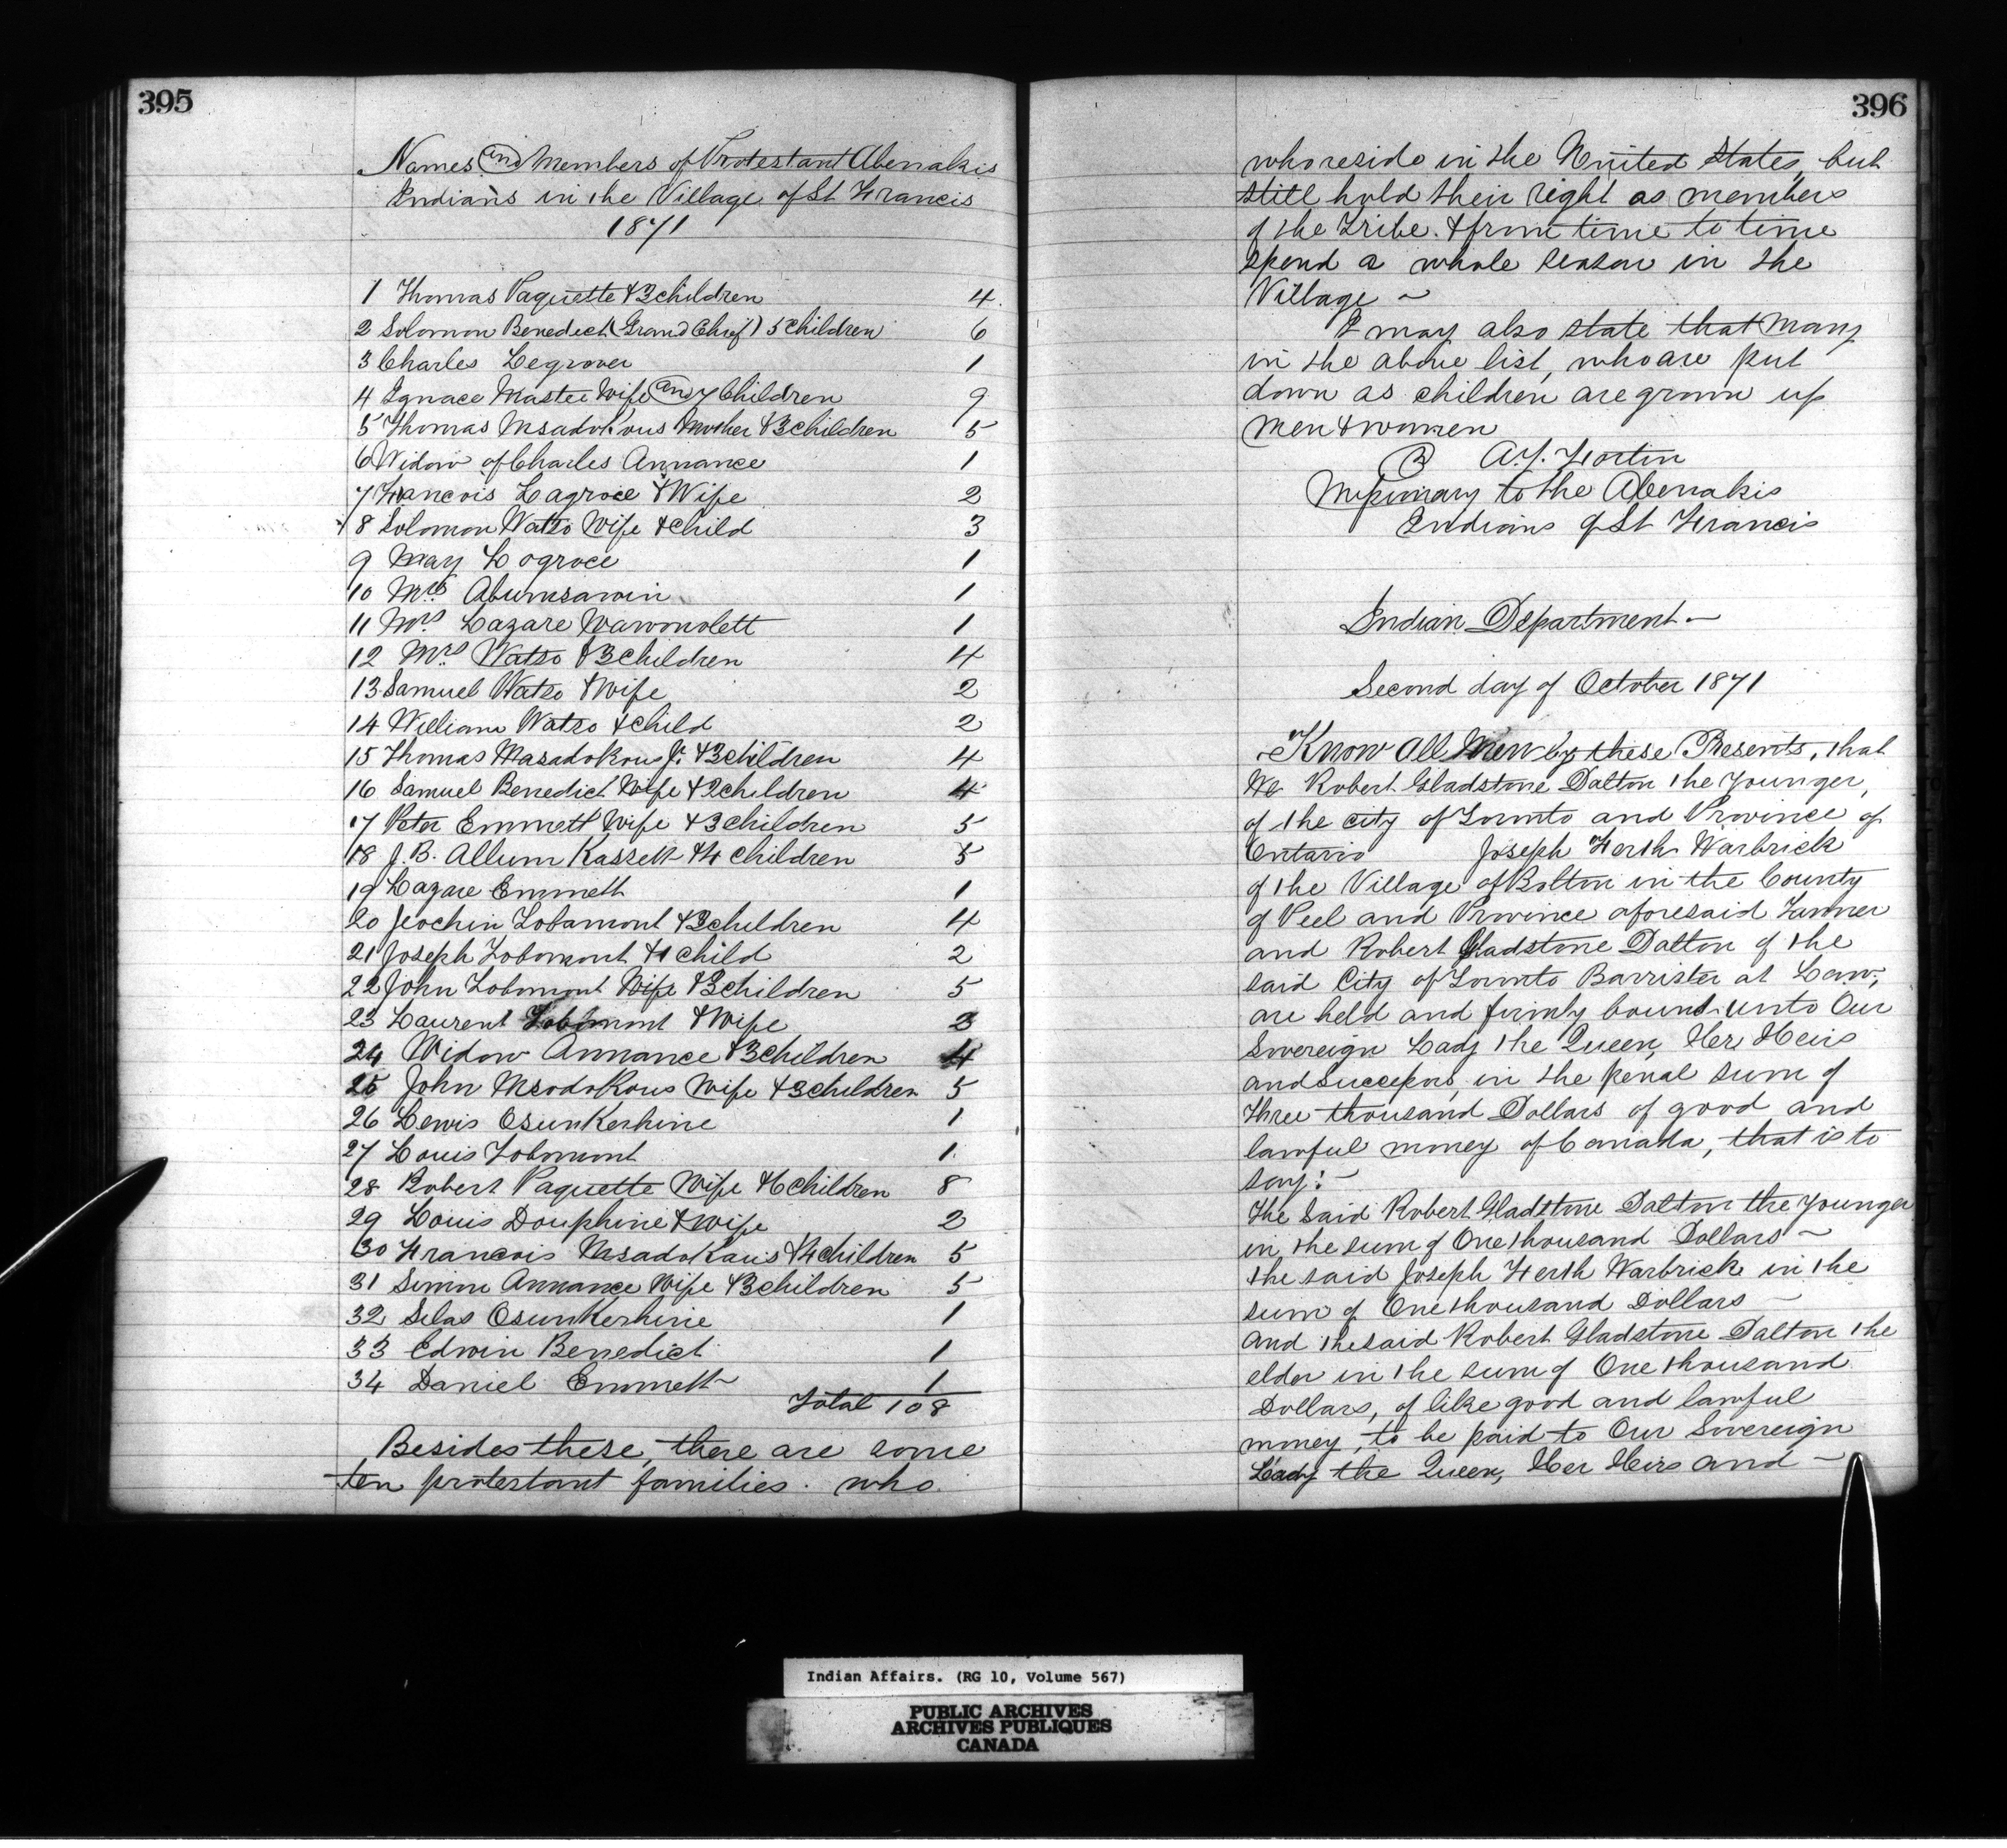 395
Names and Members of Protestant Abenakis
Indians in the Village of St Francis
1871
1 Thomas Paquette & 3 children 4
2 Solomon Benedict (Grand Chief) 5 children 6
3 Charles Legrover 1
4 Ignace Master Wife and 7 Children 9
5 Thomas Msadokous Mother & 3 children 5
6 Widow of Charles Annance 1
7 Francois Lagroce & Wife 2
8 Solomon Watso Wife & child 3
9 May Logroce 1
10 Mrs Abumsawin 1
11 Mrs Lazare Wawonolett 1
12 Mrs Watso & 3 children 4
13 Samuel Watso & Wife 2
14 William Watso & child 2
15 Thomas Masadokous Jr. & 3 children 4
16 Samuel Benedict Wife & 2 children 4
17 Peter Emmett Wife & 3 children 5
18 J. B. Allum Kassett & 4 children 5
19 Lazare Emmett 1
20 Jeochin Tobamont & 3 children 4
21 Joseph Tobomont & 1 child 2
22 John Tobomont Wife & 3 children 5
23 Laurent Tobomont & Wife 2
24 Widow Annance & 3 children 4
25 John Msodokous Wife & 3 children 5
26 Lewis Osunkerhine 1
27 Louis Tobomont 1.
28 Robert Paquette Wife & 6 children 8
29 Louis Douphine & wife 2
30 Francois Msadokaus & 4 children 5
31 Simon Annance Wife & 3 children 5
32 Silas Osunkerhine 1
33 Edwin Benedict 1
34 Daniel Emmett 1
Total 108
Besides these, there are some
ten protestant families. who
396
who reside in the United States, but
still hold their right as members
of the Tribe. & from time to time
spend a whole season in the
Village ~
I may also state that many
in the above list, who are put
down as children are grown up
men & women
A. J. Fortin
Missionary to the Abenakis
Indians of St Francis
Indian Department ~
Second day of October 1871
Know all Men by these Presents, that
We Robert Gladstone Dalton the Younger,
of the city of Toronto and Province of
Ontario Joseph Ferth Warbrick
of the Village of Bolton in the County
of Peel and Province aforesaid Tanner
and Robert Gladstone Dalton of the
said City of Toronto Barrister at Law,
are held and firmly bound unto Our
Sovereign Lady the Queen, Her Heirs
and Successors, in the penal sum of
three thousand Dollars of good and
lawful money of Canada, that is to
say: ~
The said Robert Gladstone Dalton the younger
in the sum of One thousand Dollars ~
the said Joseph Ferth Warbrick in the
sum of One thousand Dollars ~
and the said Robert Gladstone Dalton the
elder in the sum of One thousand
Dollars, of like good and lawful
money, to be paid to Our Sovereign
Lady the Queen, Her Heirs and ~
Indian Affairs. (RG 10, Volume 567)
PUBLIC ARCHIVES
ARCHIVES PUBLIQUES
CANADA